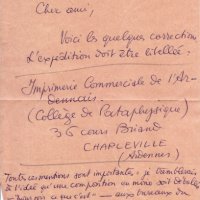 Cher ami,
Voici les quelques corrections
L'expédition doit être libellée.
Imprimerie Commerciale de l'Ar-
dennais.
(Collège de Pataphysique)
36 cours Briand
CHARLEVILLE
(Ardennes)
Toutes ces mentions sont importantes : je tremblerais
à l'idée qu'une composition en mène soit déballée
ce que c'est — aux bureaux du